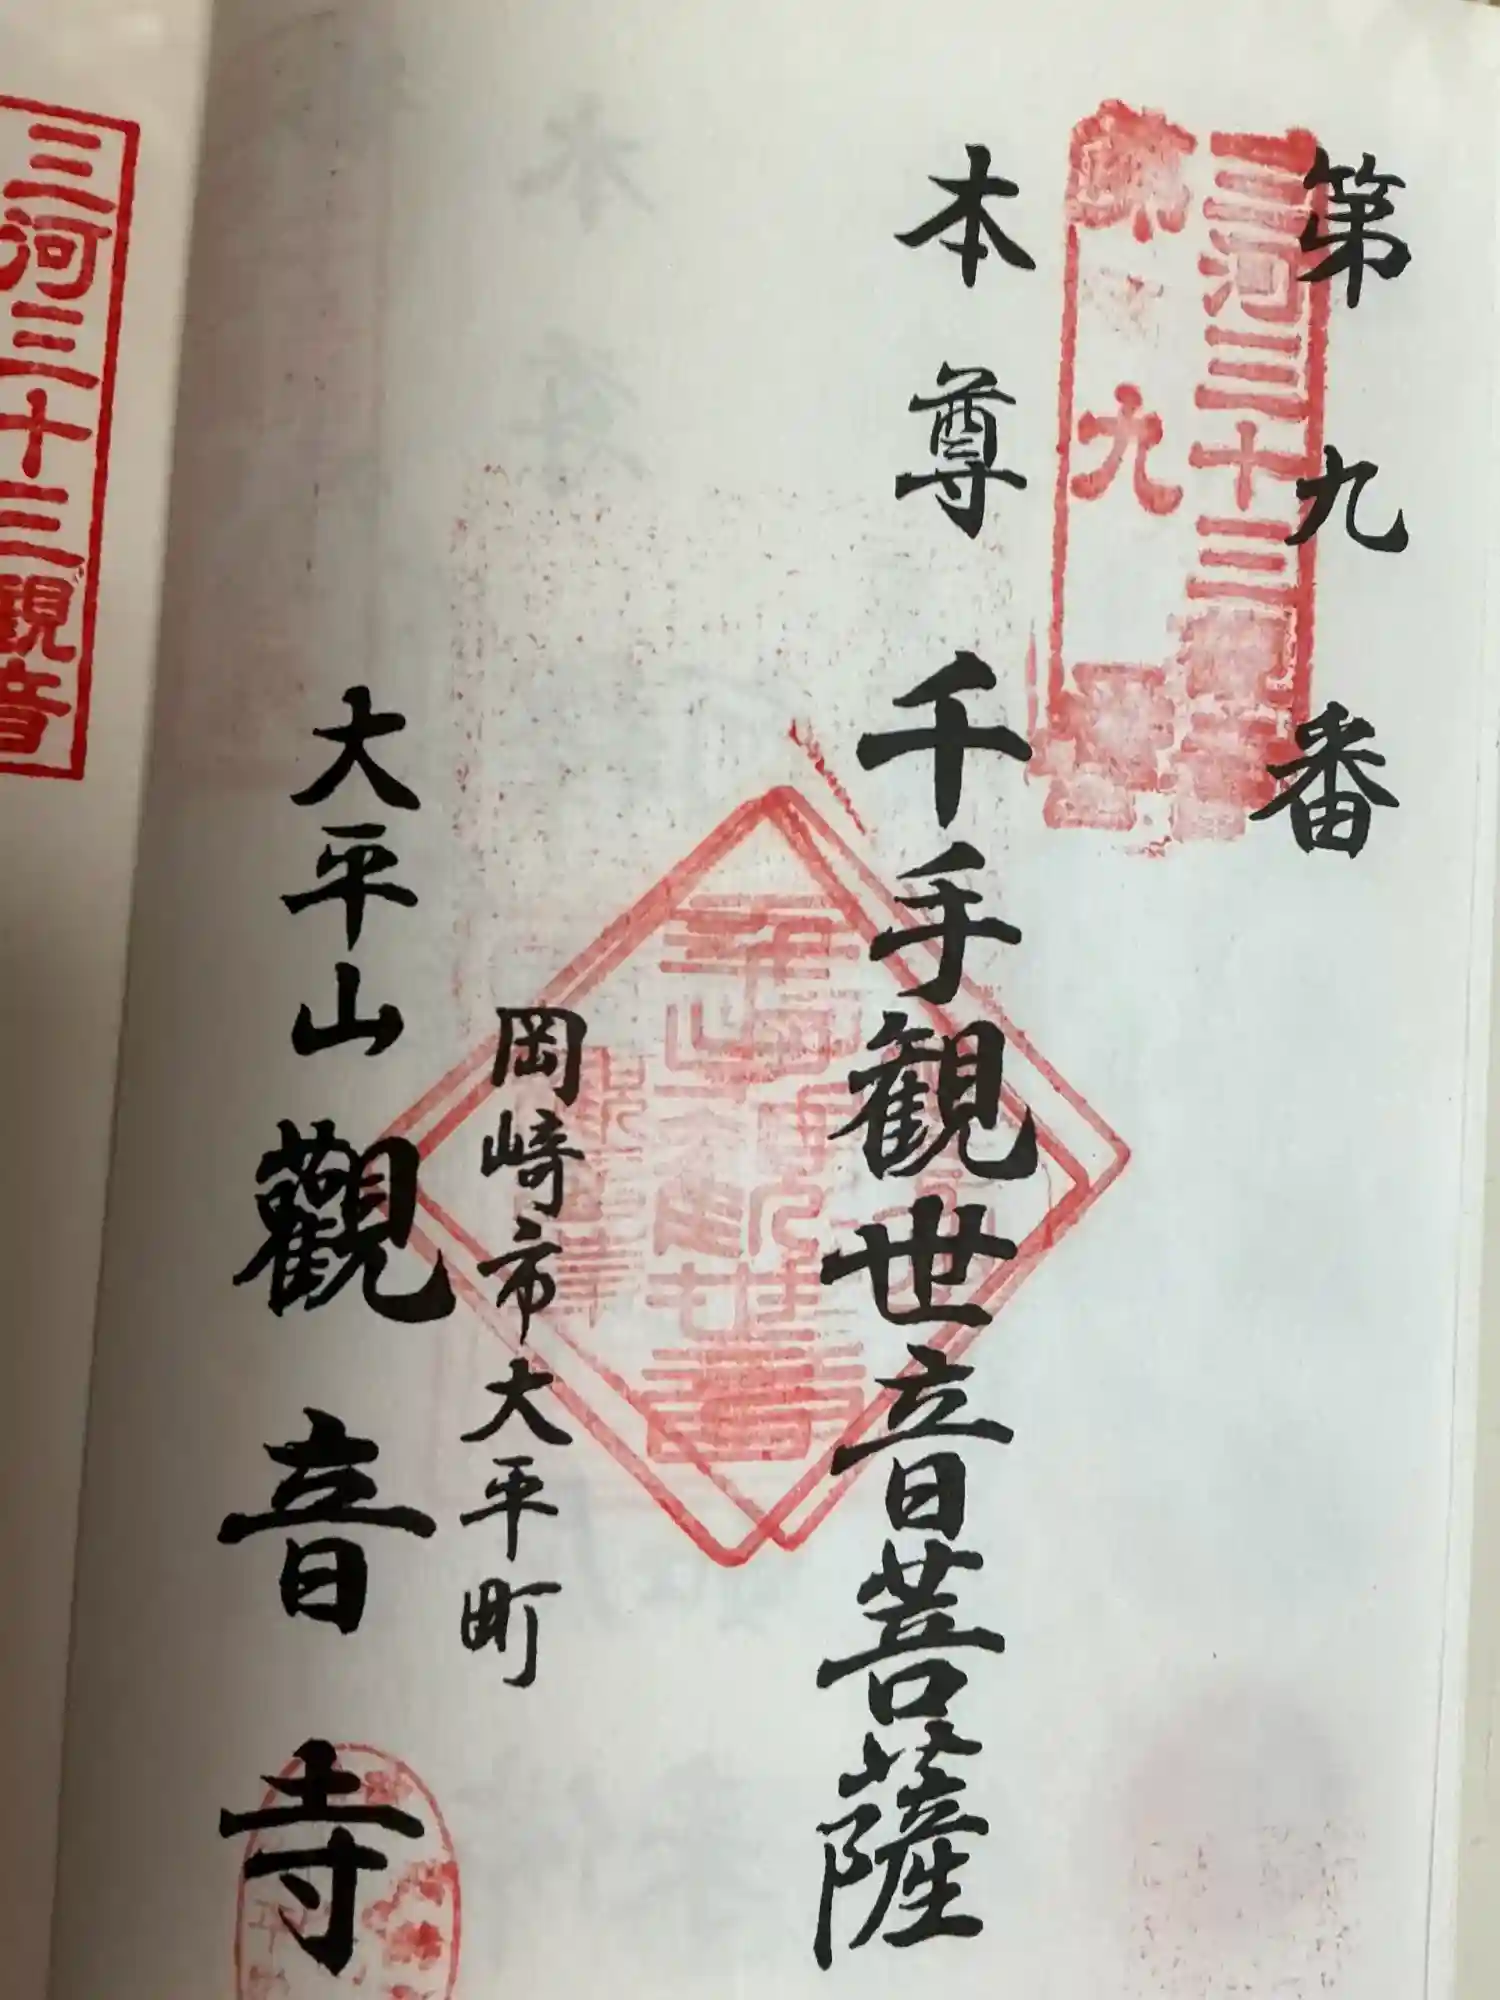 第九番
三河三十三
九
本尊 千手観世音菩薩
岡崎市大平町
大平山 觀音寺
三河三十三観音